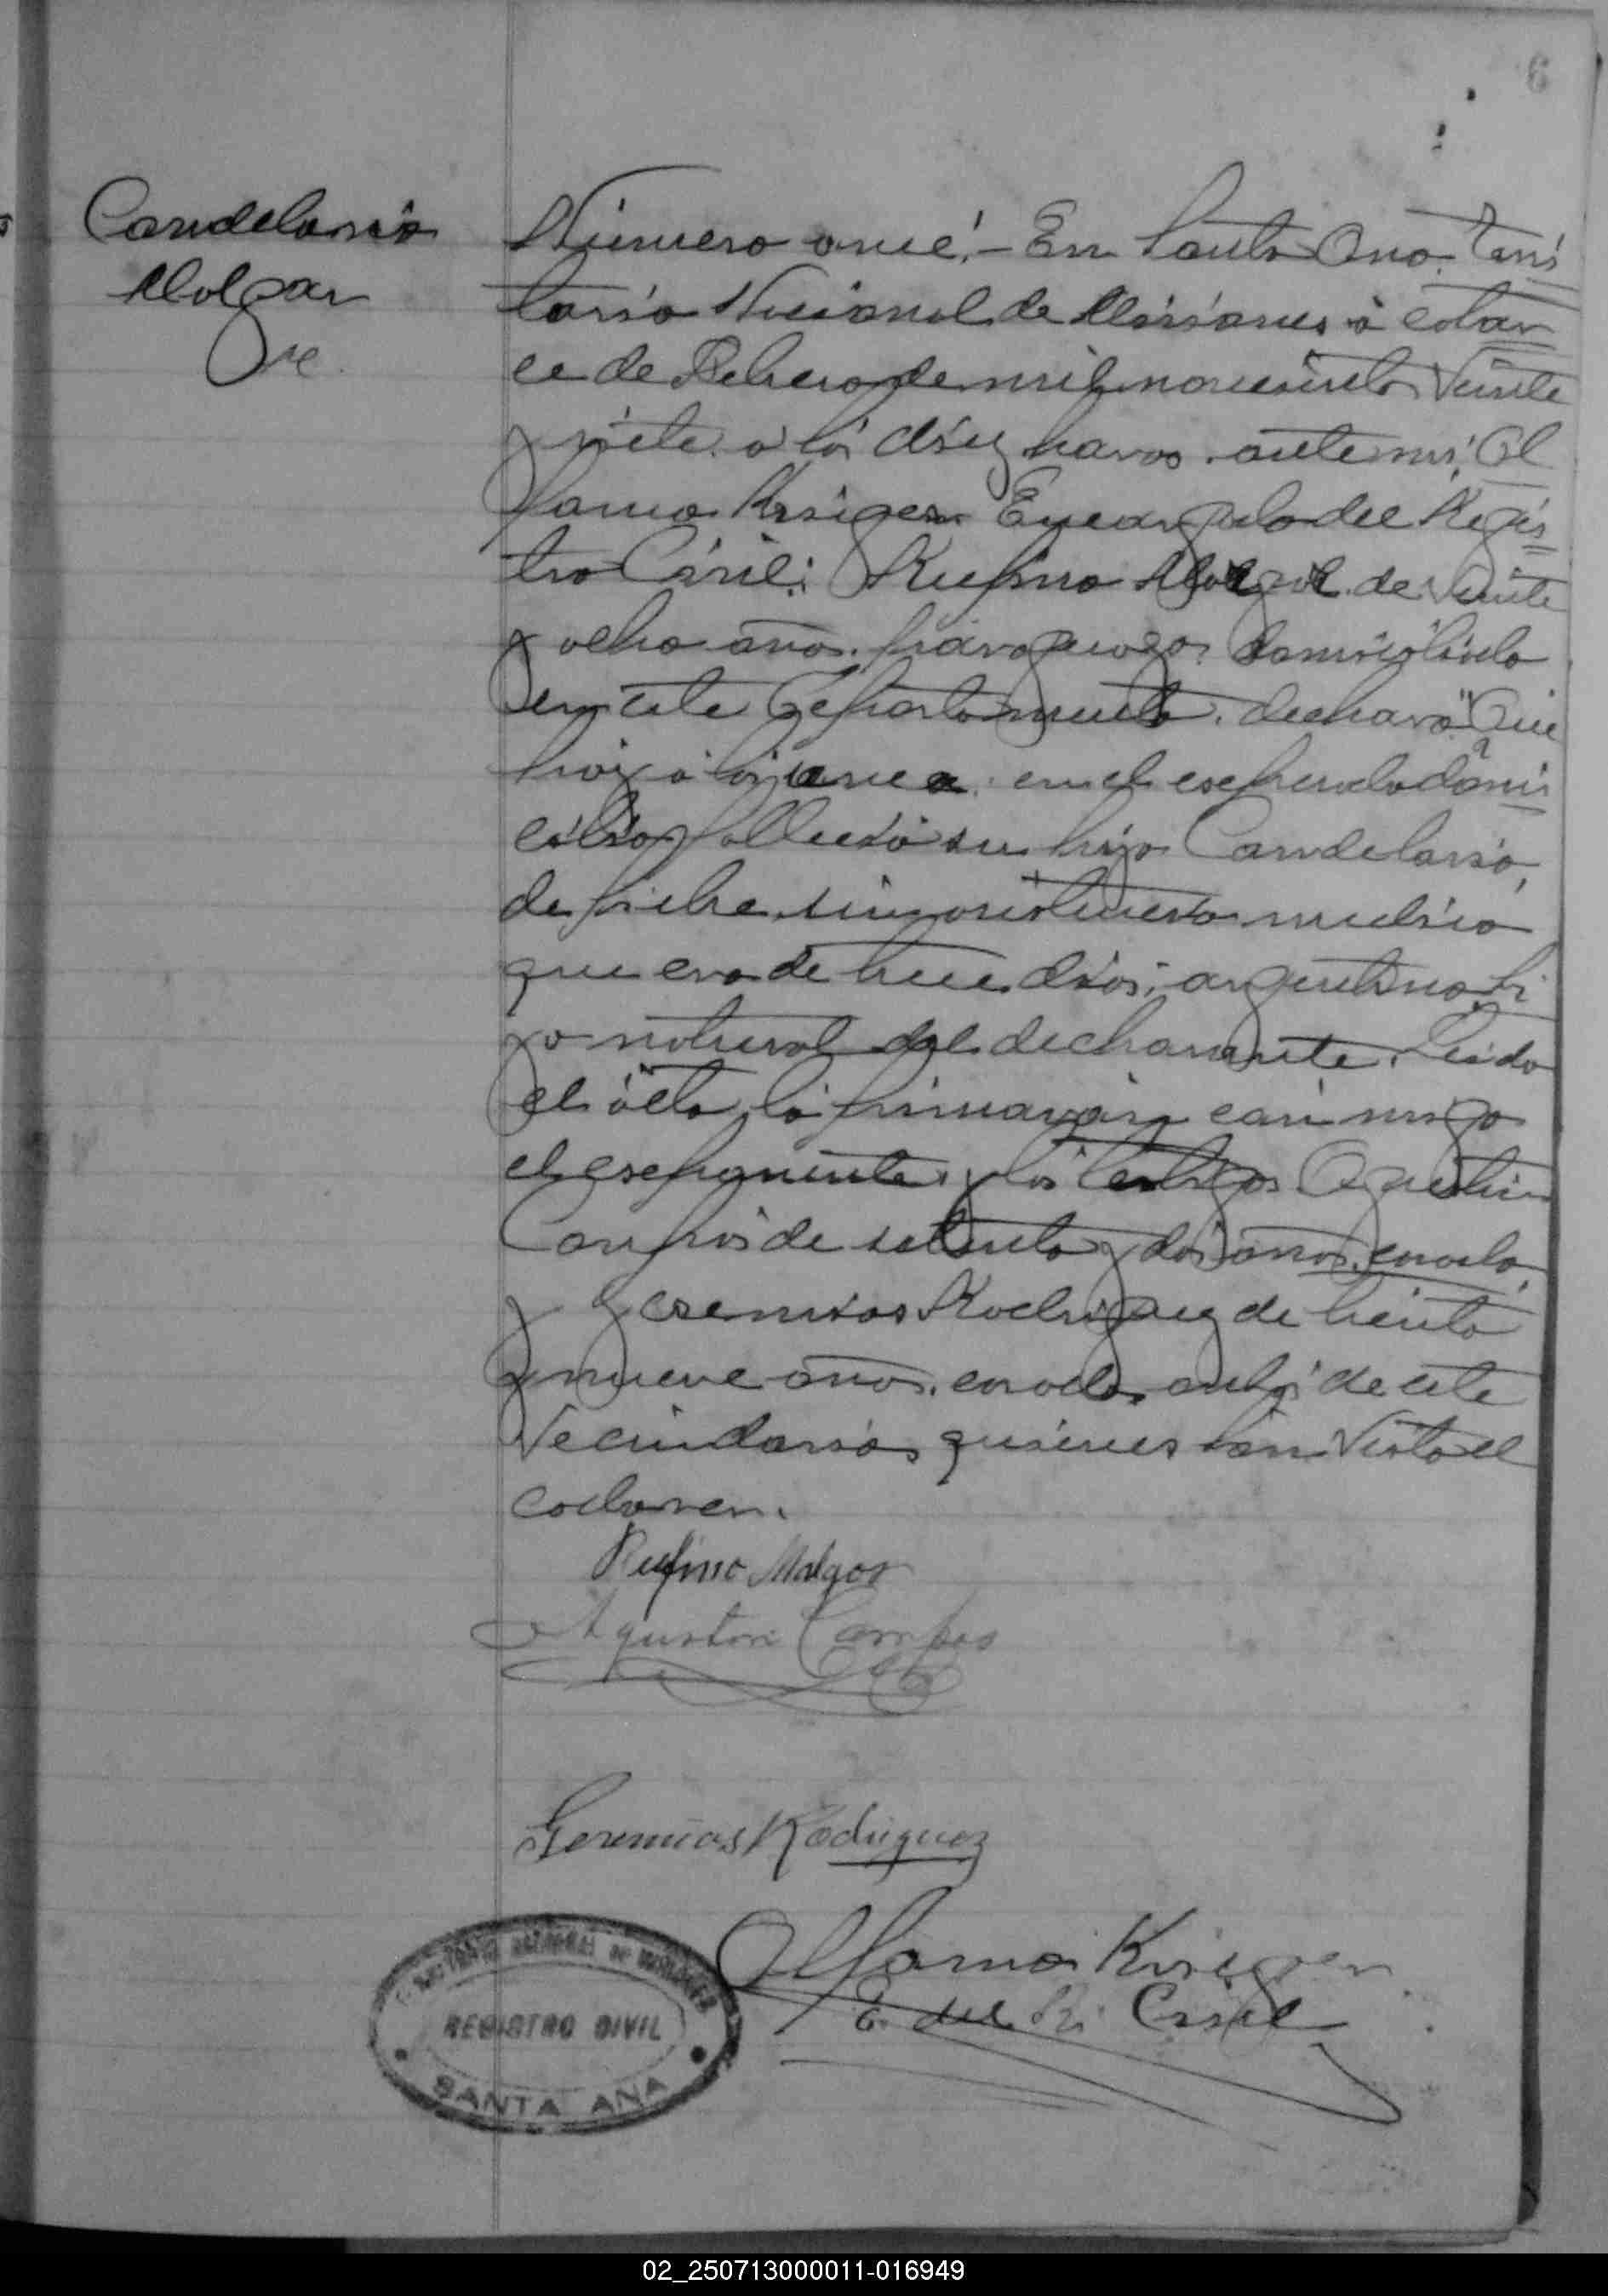 6
Candelario
Molgar
Número once.- En Santa Ana, Terri
torio Nacional de Misiones, á cator
ce de Febrero de mil novecientos Veinte
y siete, á las diez horas, ante mi, Al
Krieger Encargado del Regis
tro Civil: Rufino de Veinte
y ocho años, paraguayo, domiciliado
en este Departamento, declaró: "Que
hoy á las en el espresado domi
cilio, falleció su hijo Candelario,
de fiebre, sin asistencia medica
que era de trece dias, argentino, hi
jo natural del declarante. Leida
el acta, la firmaron con migo
el esponente, y los testigos Agustin
Campos de setenta y dos años, casado,
y Geremias Rodriguez de treinta
y nueve años, casado, ambos de este
Vecindario, quienes han Visto el
cadaver.
Rufino Molgar
Agustin Campos
Geremias Rodriguez
Krieger
E. del R. Civil
TERRITORIO NACIONAL DE MISIONES
REGISTRO CIVIL
SANTA ANA
02_250713000011-016949